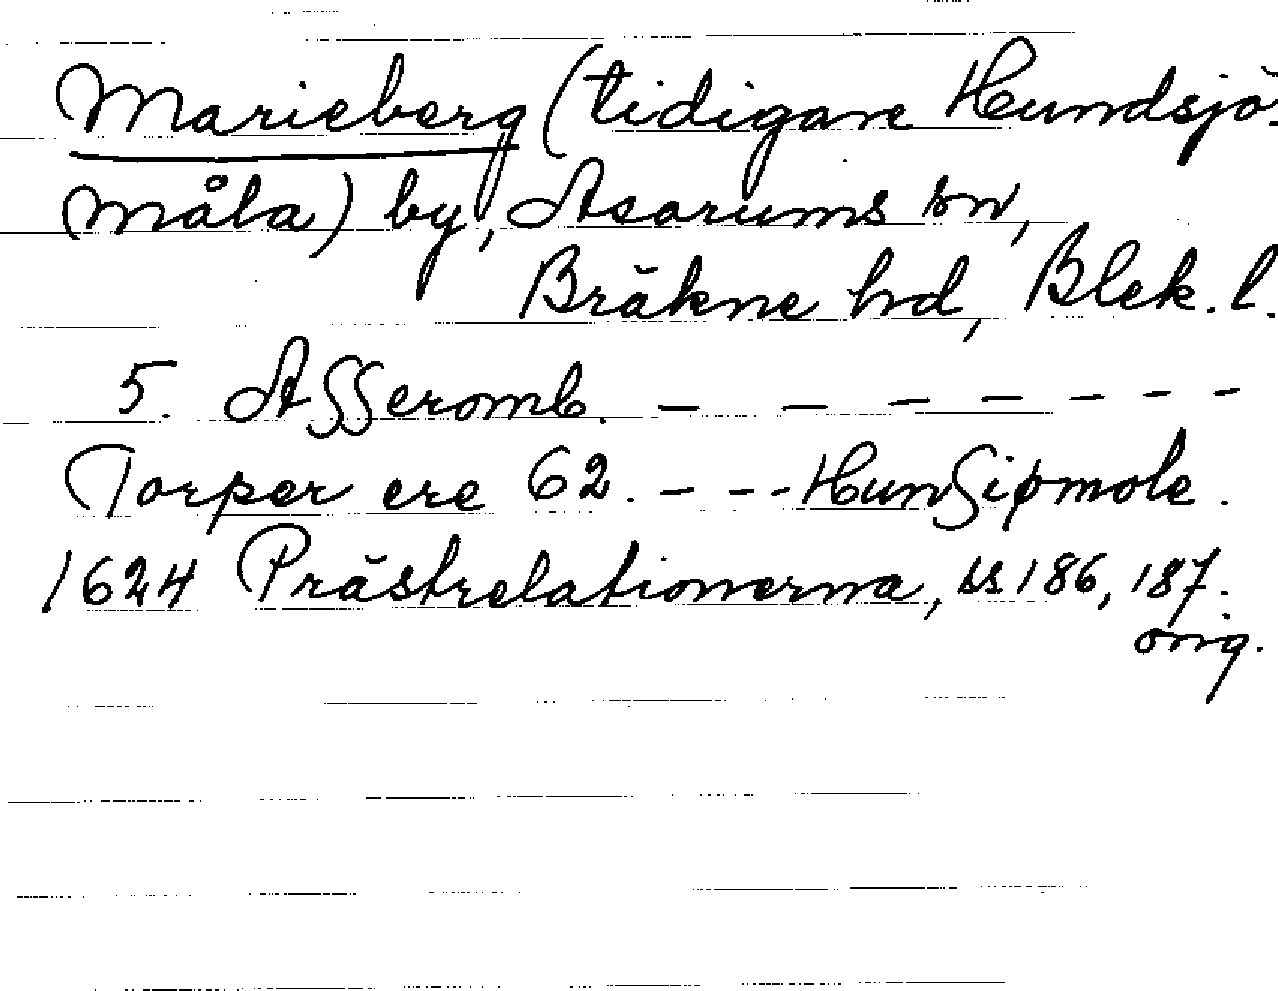 Marieberg (tidigare Hundsjö-
måla) by, Asarums sn,
Bräkne hd, Blek. l.
5. Asseromb. - - - - - - -
Torper ere 62. - - - Hunsiømole.
1624 Prästrelationerna, ss 186, 187.
orig.